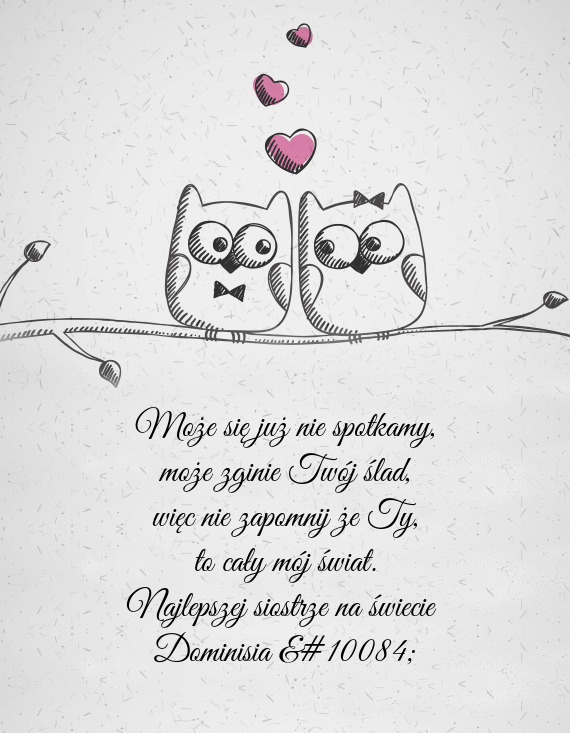 Może się już nie spotkamy,
może zginie Twój ślad,
więc nie zapomnij że Ty,
to cały mój świat.
Najlepszej siostrze na świecie
Dominisia &#10084;